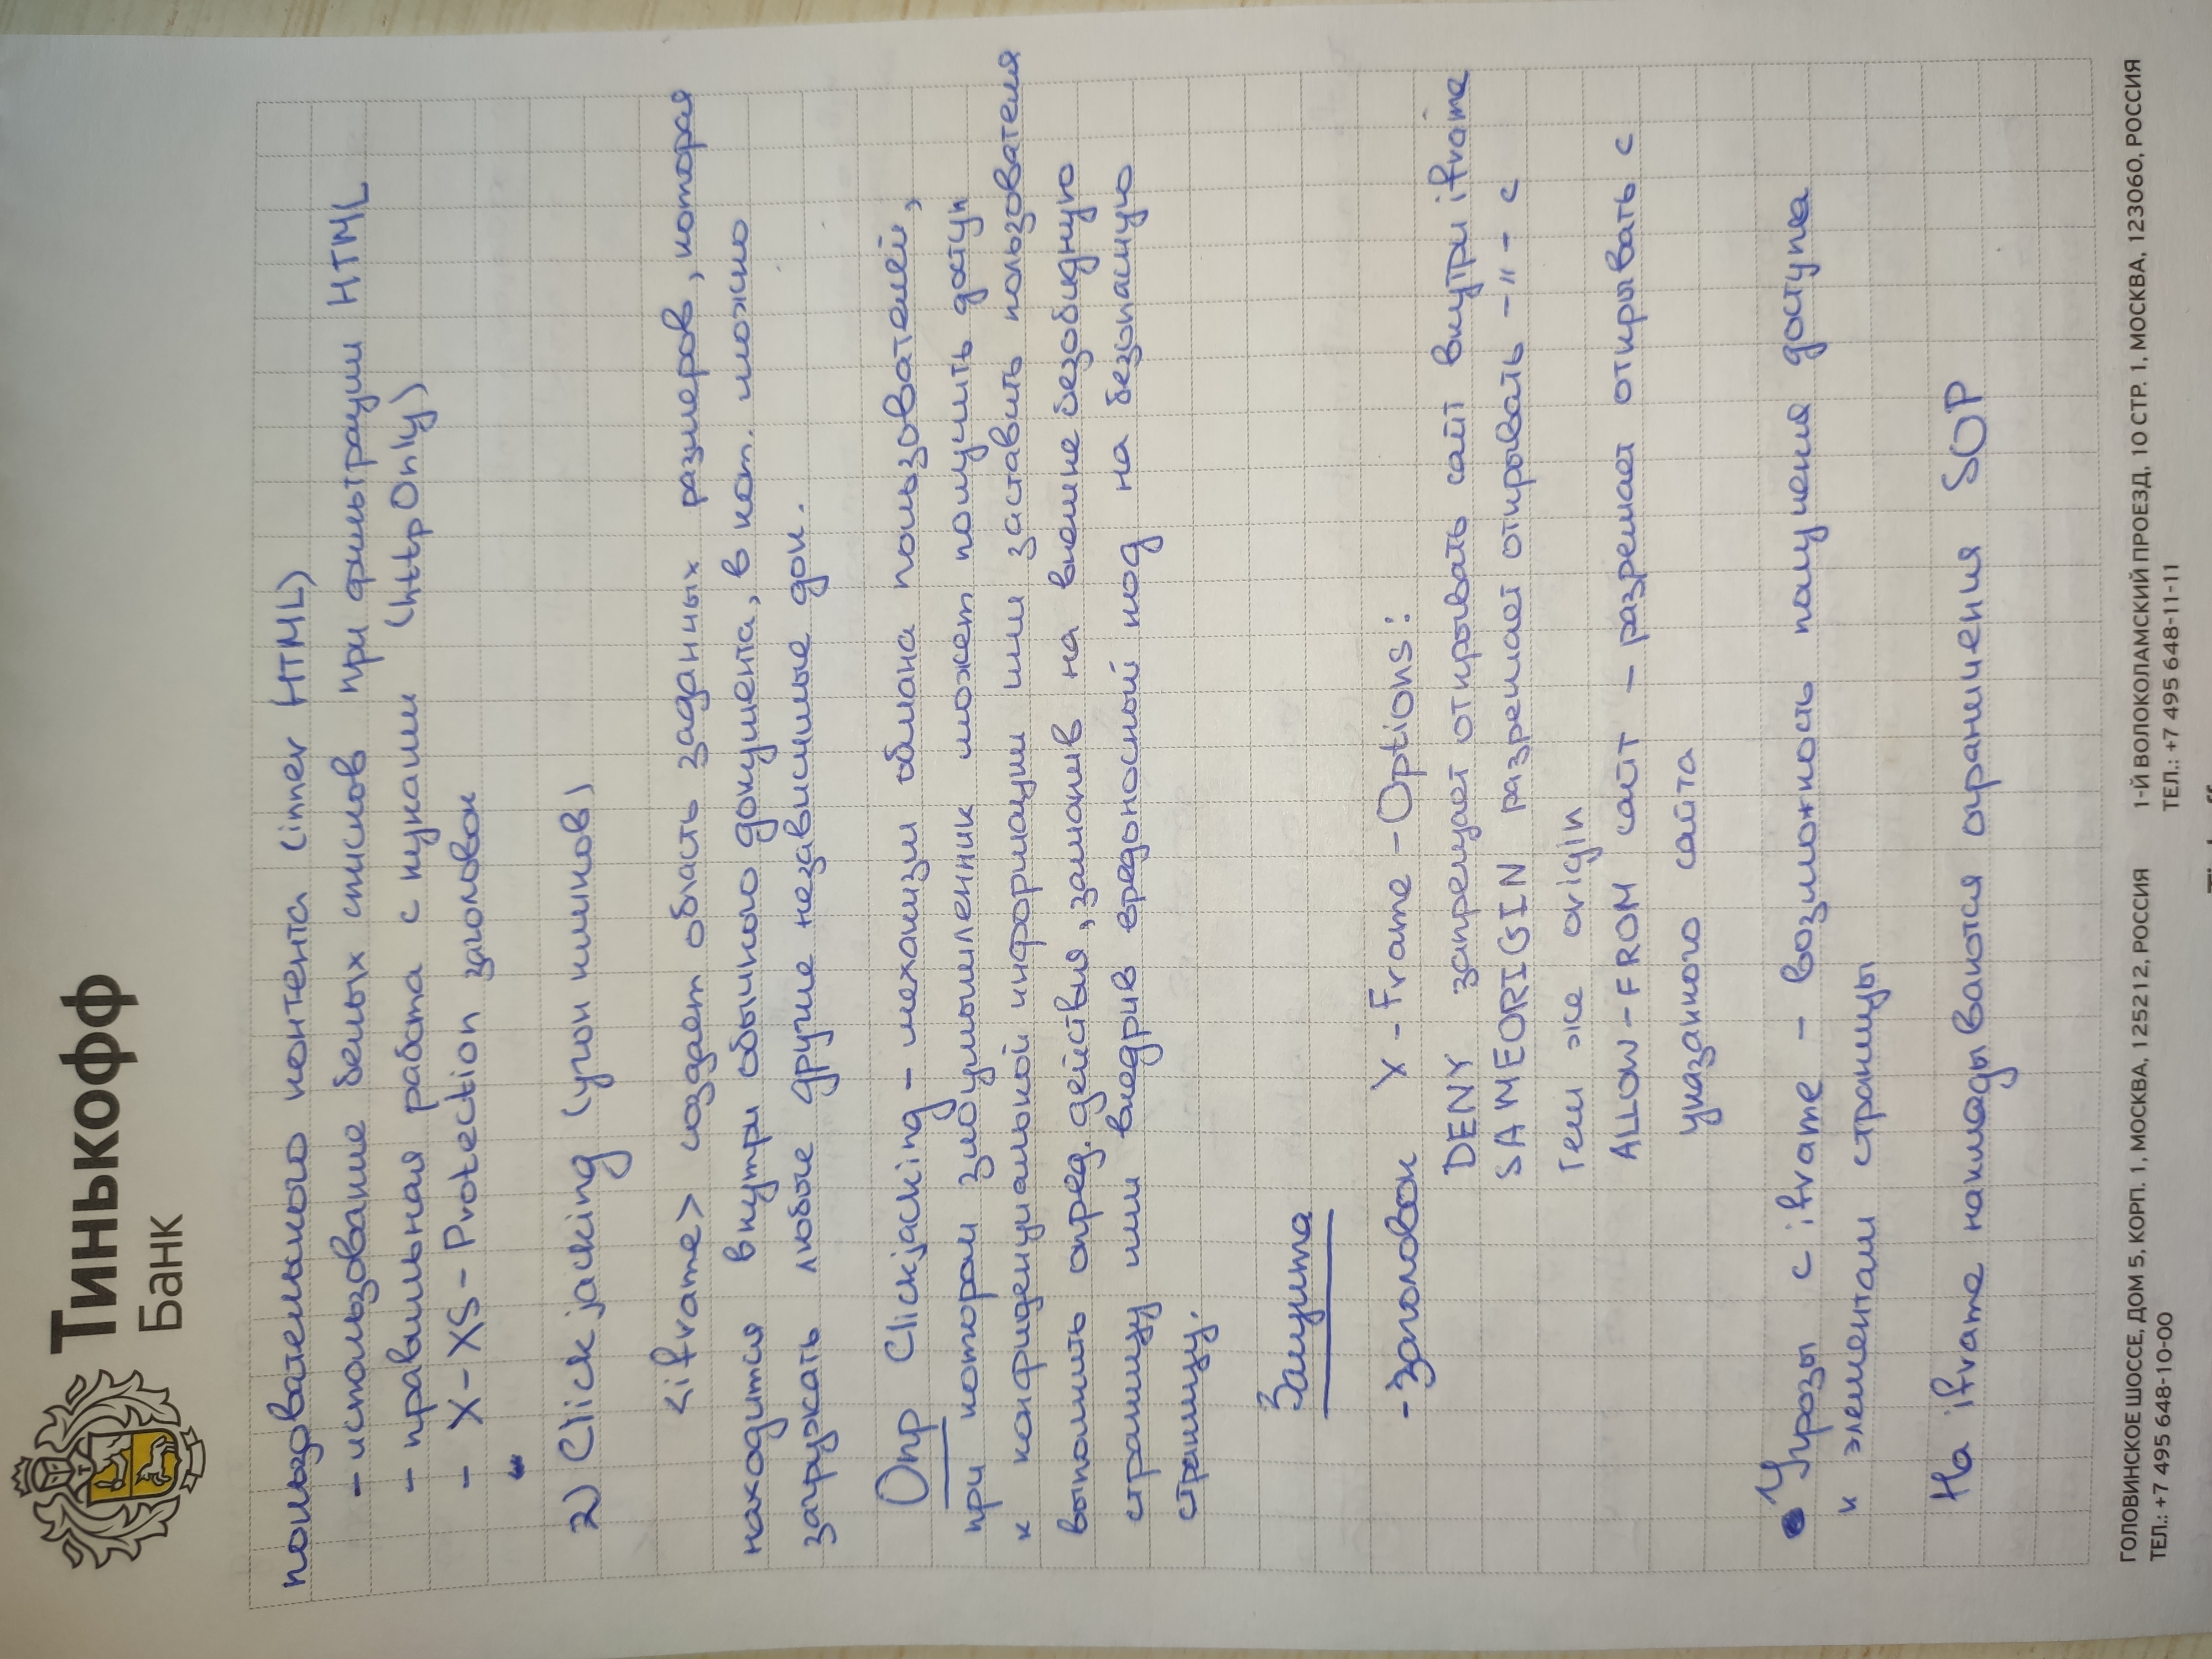 Тинькофф
Банк
пользовательского контента (inner HTML)
- использование белых списков при фильтрации HTML
- правильная работа с куками (httpOnly)
- X-XS-Protection заголовок
2) Clickjacking (угон кликов)
<iframe> создает область заданных размеров, которая
находится внутри обычного документа, в кот. можно
загружать любые другие независимые док.
Опр Clickjacking - механизм обмана пользователей,
при котором злоумышленник может получить доступ
к конфиденциальной информации или заставить пользователя
выполнить опред. действия, заманив на внешне безобидную
страницу или внедрив вредоносный код на безопасную
страницу.
Защита
- Заголовок X-Frame-Options:
DENY запрещает открывать сайт внутри iframe
SAMEORIGIN разрешает открывать -"- с
тем же origin
ALLOW-FROM сайт - разрешает открывать с
указанного сайта
Угрозы с iframe - возможность получения доступа
к элементам страницы
На iframe накладываются ограничения SOP
ГОЛОВИНСКОЕ ШОССЕ, ДОМ 5, КОРП. 1, МОСКВА, 125212, РОССИЯ
ТЕЛ.: +7 495 648-10-00
1-Й ВОЛОКОЛАМСКИЙ ПРОЕЗД, 10 СТР. 1, МОСКВА, 123060, РОССИЯ
ТЕЛ.: +7 495 648-11-11